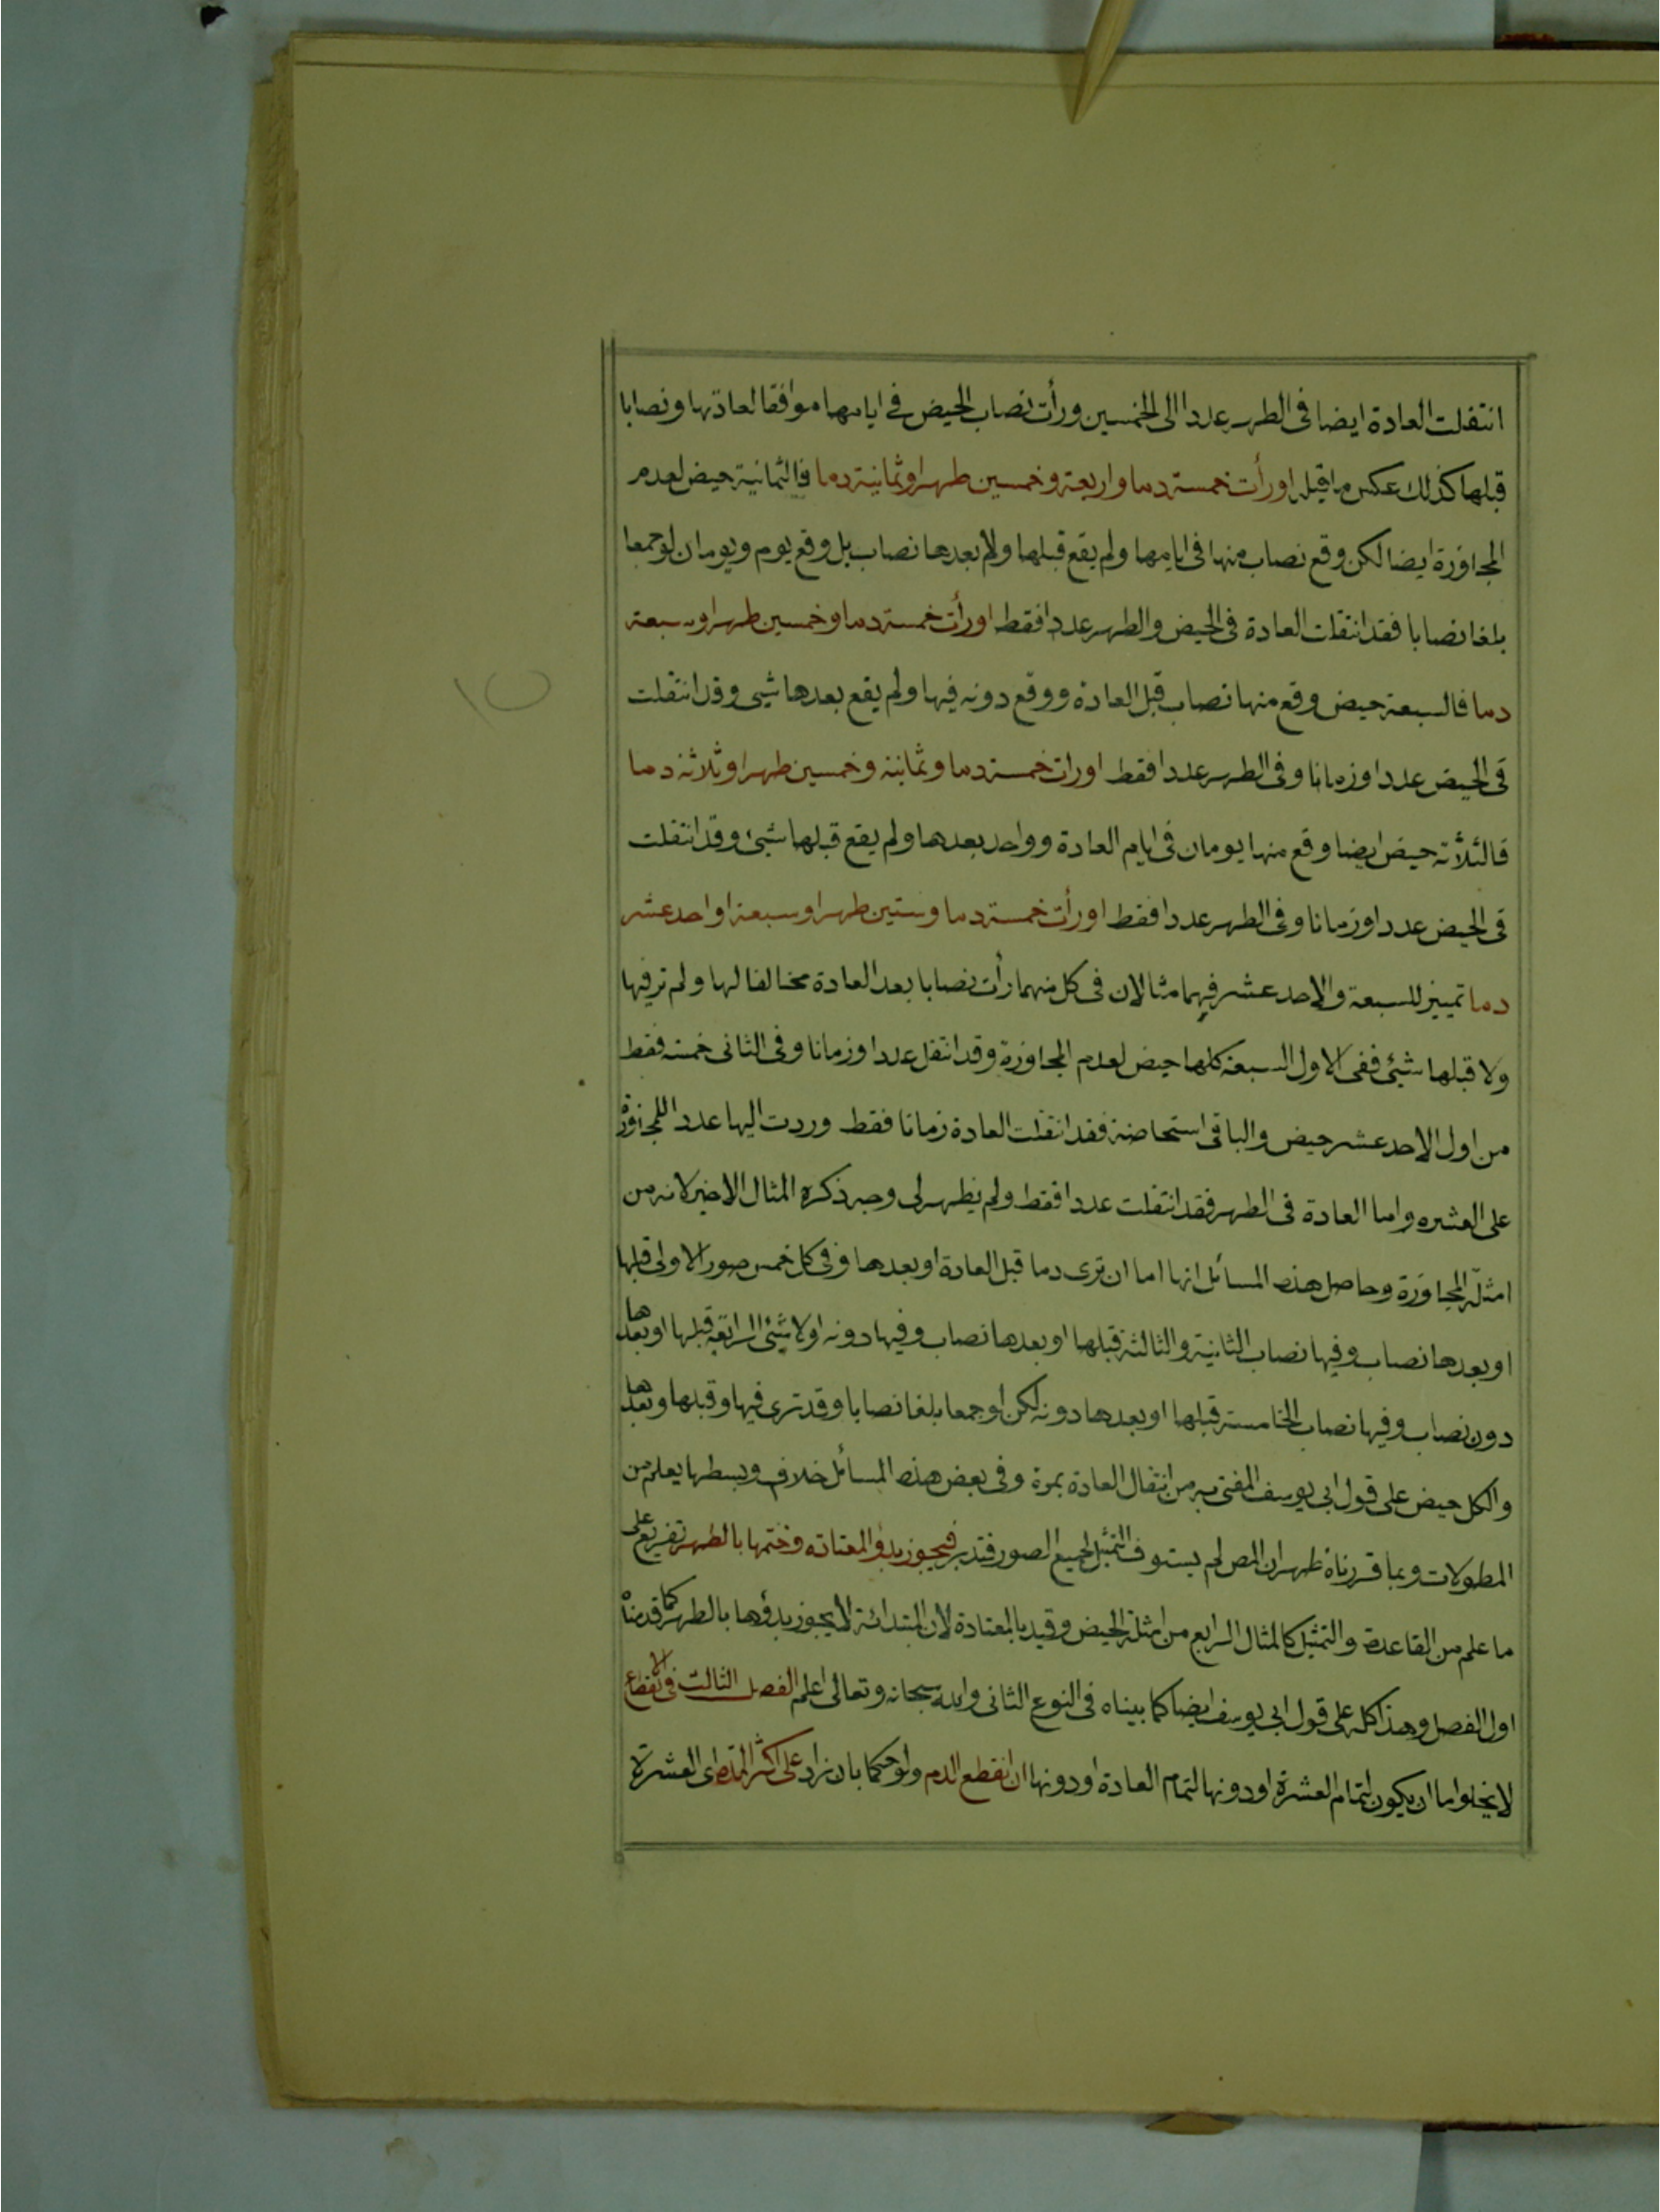 انتقلت العادة ايضا فى الطهر عددا الى الخمسين ورأت نصاب الحيض فى ايامها موافقا لعادتها ونصابا
قبلها كذلك عكس ما قبل اورأت خمسة دما واربعة وخمسين طهرا وثمانية دما فالثمانية حيض لعدم
المجاوزة ايضا لكن وقع نصاب منها فى ايامها ولم يقع قبلها ولا بعدها نصاب بل وقع يوم ويومان لو جمعا
بلغا نصابا فقد انتقلت العادة فى الحيض والطهر عددا فقط اورأت خمسة دما وخمسين طهرا وسبعة
دما فالسبعة حيض وقع منها نصاب قبل العادة ووقع دونه فيها ولم يقع بعدها شيى وقد انتقلت
فى الحيض عددا وزمانا وفى الطهر عددا فقط اورات خمسة دما وثمانية وخمسين طهرا وثلاثة دما
فالثلاثة حيض ايضا وقع منها يومان فى ايام العادة وواحد بعدها ولم يقع قبلها شيئ وقد انتقلت
فى الحيض عددا وزمانا وفى الطهر عددا فقط اورأت خمسة دما وستين طهرا وسبعة او احد عشر
دما تمييز للسبعة والاحد عشر فهما مثالان فى كل منهما رأت نصابا بعد العادة مخالفا لها ولم تر فيها
ولا قبلها شيئ ففى الاول السبعة كلها حيض لعدم المجاوزة وقد انتقل عددا وزمانا وفى الثانى خمسة فقط
من اول الاحد عشر حيض والباقى استحاضة فقد انتقلت العادة زمانا فقط وردت اليها عددا للمجاوزة
على العشره واما العادة فى الطهر فقد انتقلت عددا فقط ولم يظهر لى وجه ذكره المثال الاخير لانه من
امثلة المجاوزة وحاصل هذه المسائل انها اما ان ترى دما قبل العادة او بعدها وفى كل خمس صور الاولى قبلها
او بعدها نصاب وفيها نصاب الثانية والثالثة قبلها او بعدها نصاب وفيها دونه اولا شيئ الرابعة قبلها او بعدها
دون نصاب وفيها نصاب الخامسة قبلها او بعدها دونه لكن لو جمعا بلغا نصابا وقد ترى فيها وقبلها وبعدها
والكل حيض على قول ابى يوسف المفتى به من انتقال العادة بمرة وفى بعض هذه المسائل خلاف وبسطها يعلم من
المطولات وبما قررناه ظهر ان المص لم يستوف التمثيل لجميع الصور فتدبر فيجوز بدؤ المعتادة وختمها بالطهر تفريع على
ما علم من القاعدة والتمثيل كالمثال الرابع من امثلة الحيض وقيد بالمعتادة لان المبتدائة لا يجوز بدؤها بالطهر كما قدمناه
اول الفصل وهذا كله على قول ابى يوسف ايضا كما بيناه فى النوع الثانى والله سبحانه وتعالى اعلم الفصل الثالث فى الانقطاع
لا يخلو اما ان يكون لتمام العشرة او دونها لتمام العادة او دونها ان انقطع الدم ولو حكما بان زاد على اكثر المدة اى العشرة